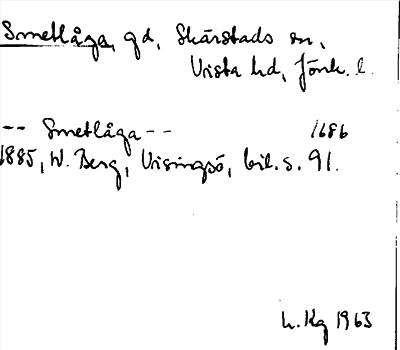 Smetlåga, gd, Skärstads sn,
Vista hd, Jönk. l.
-- Smetlåga -- 1686
1885, W. Berg, Visingsö, bil. s. 91.
h. Kg 1963